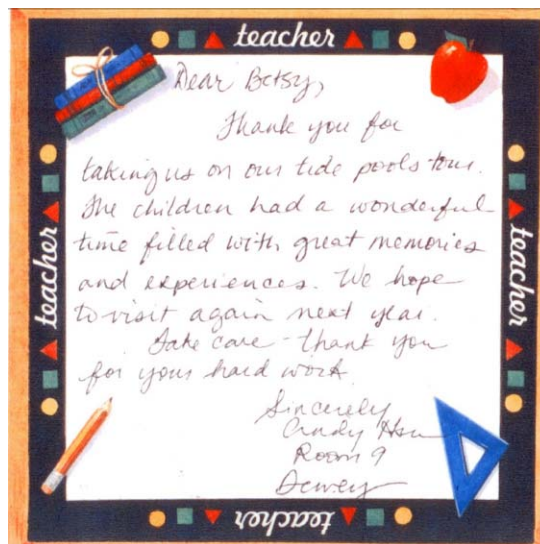 teacher
Dear Betsy,
Thank you for
taking us on our tide pools tour.
The children had a wonderful
time filled with great memories
and experiences. We hope
to visit again next year.
Take care - thank you
for your hard work
Sincerely
Cindy Hsu
Room 9
Dewey
teacher
teacher
teacher